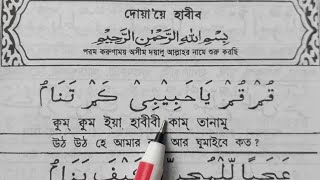 দোয়া'য়ে হাবীব
بِسْمِ اللهِ الرَّحْمٰنِ الرَّحِيْمِ
পরম করুণাময় অসীম দয়ালু আল্লাহর নামে শুরু করছি
قُمْ قُمْ يَا حَبِيْبِىْ كَمْ تَنَامُ
কুম্ কুম্ ইয়া হাবীবী কাম্ তানামু
উঠ উঠ হে আমার আর ঘুমাইবে কত ?
عَجَبًا لِّلْمُحِبِّ كَيْفَ يَنَامُ